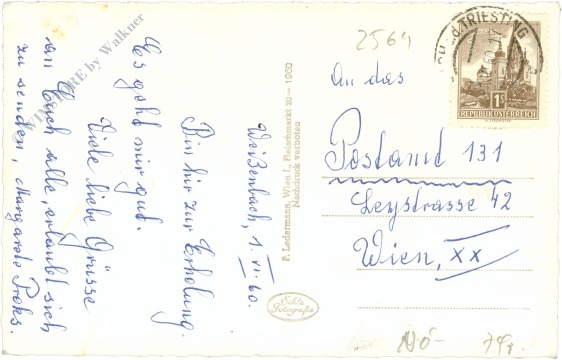 Weißenbach, 1. VI. 60.
Bin hir zur Erholung.
Es geht mir gut.
Viele liebe Grüsse
an Euch alle, erlaubt sich
zu senden, Margarete Proks.
P. Ledermann, Wien I., Fleischmarkt 20 — 1960
Nachdruck verboten
Echte
Fotografie
2564
TRIESTING
1S
REPUBLIK ÖSTERREICH
An das
Postamt 131
Leystrasse 42
Wien, XX
NÖ-
by Walkner